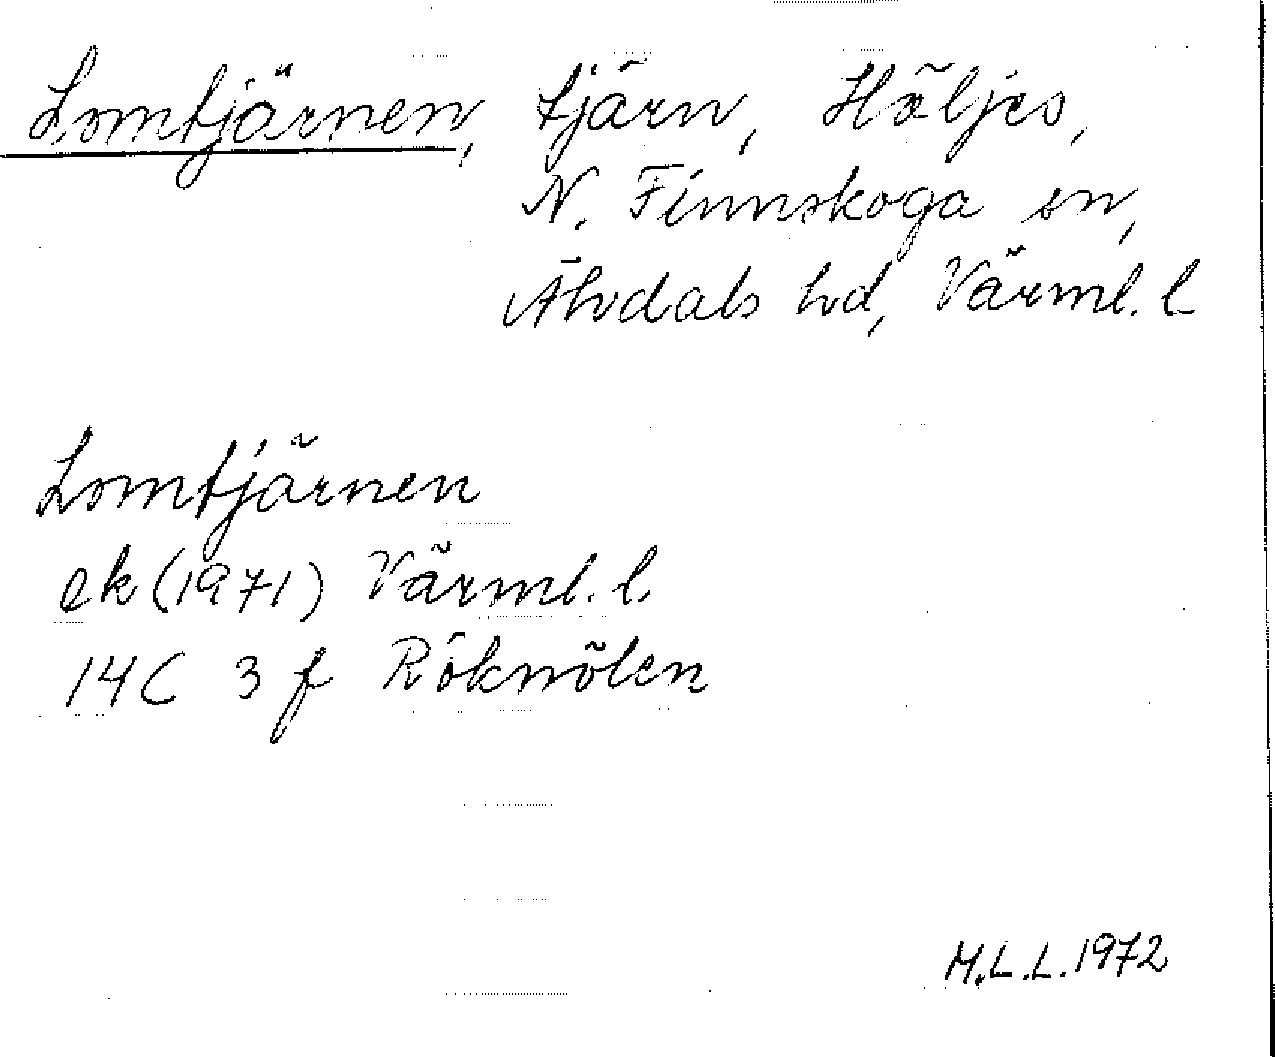 Lomtjärnen, tjärn, Höljes,
N. Finnskoga sn,
Älvdals hd, Värml. l
Lomtjärnen
ek (1971) Värml. l.
14C 3 f Röknölen
M.L.L. 1972